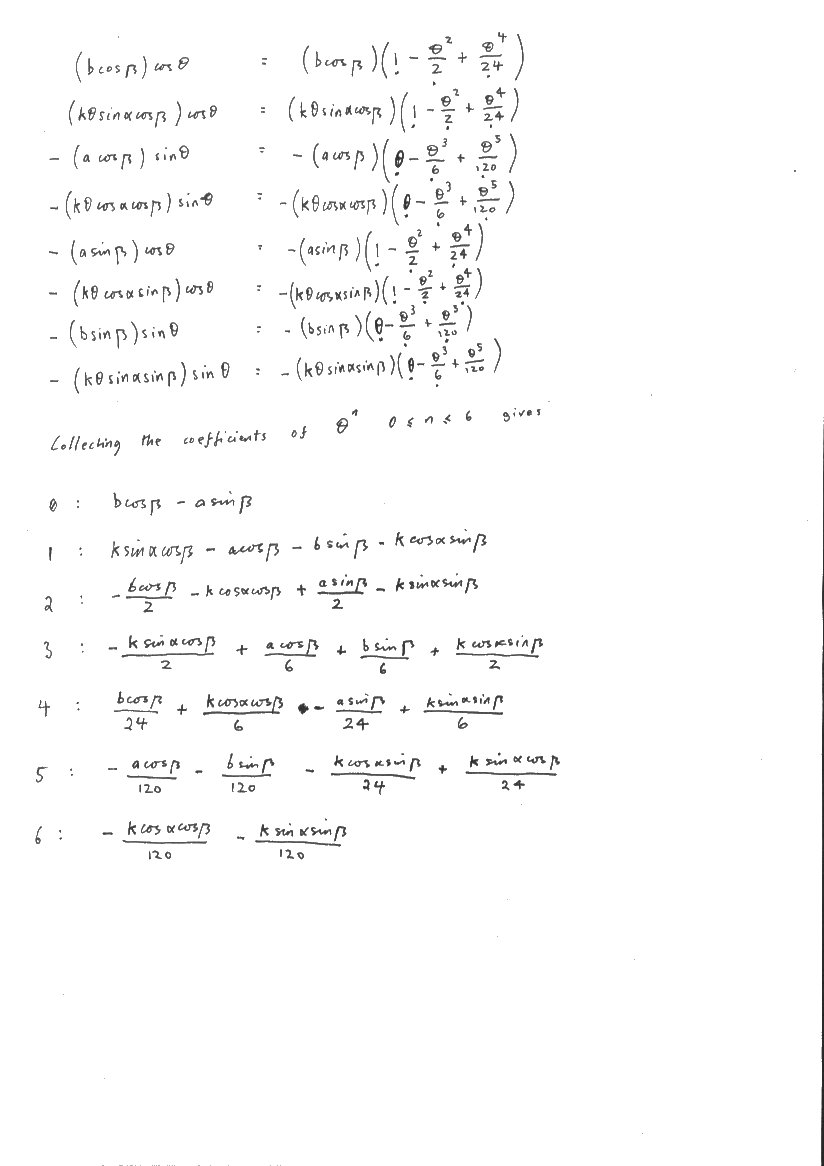 (b cos β) cos θ = (b cos β)(1 - θ²/2 + θ⁴/24)
(kθ sin α cos β) cos θ = (kθ sin α cos β)(1 - θ²/2 + θ⁴/24)
- (a cos β) sin θ = - (a cos β)(θ - θ³/6 + θ⁵/120)
- (kθ cos α cos β) sin θ = - (kθ cos α cos β)(θ - θ³/6 + θ⁵/120)
- (a sin β) cos θ = - (a sin β)(1 - θ²/2 + θ⁴/24)
- (kθ cos α sin β) cos θ = - (kθ cos α sin β)(1 - θ²/2 + θ⁴/24)
- (b sin β) sin θ = - (b sin β)(θ - θ³/6 + θ⁵/120)
- (kθ sin α sin β) sin θ = - (kθ sin α sin β)(θ - θ³/6 + θ⁵/120)
Collecting the coefficients of θⁿ 0 ≤ n ≤ 6 gives
0 : b cos β - a sin β
1 : k sin α cos β - a cos β - b sin β - k cos α sin β
2 : - b cos β/2 - k cos α cos β + a sin β/2 - k sin α sin β
3 : - k sin α cos β/2 + a cos β/6 + b sin β/6 + k cos α sin β/2
4 : b cos β/24 + k cos α cos β/6 - a sin β/24 + k sin α sin β/6
5 : - a cos β/120 - b sin β/120 - k cos α sin β/24 + k sin α cos β/24
6 : - k cos α cos β/120 - k sin α sin β/120